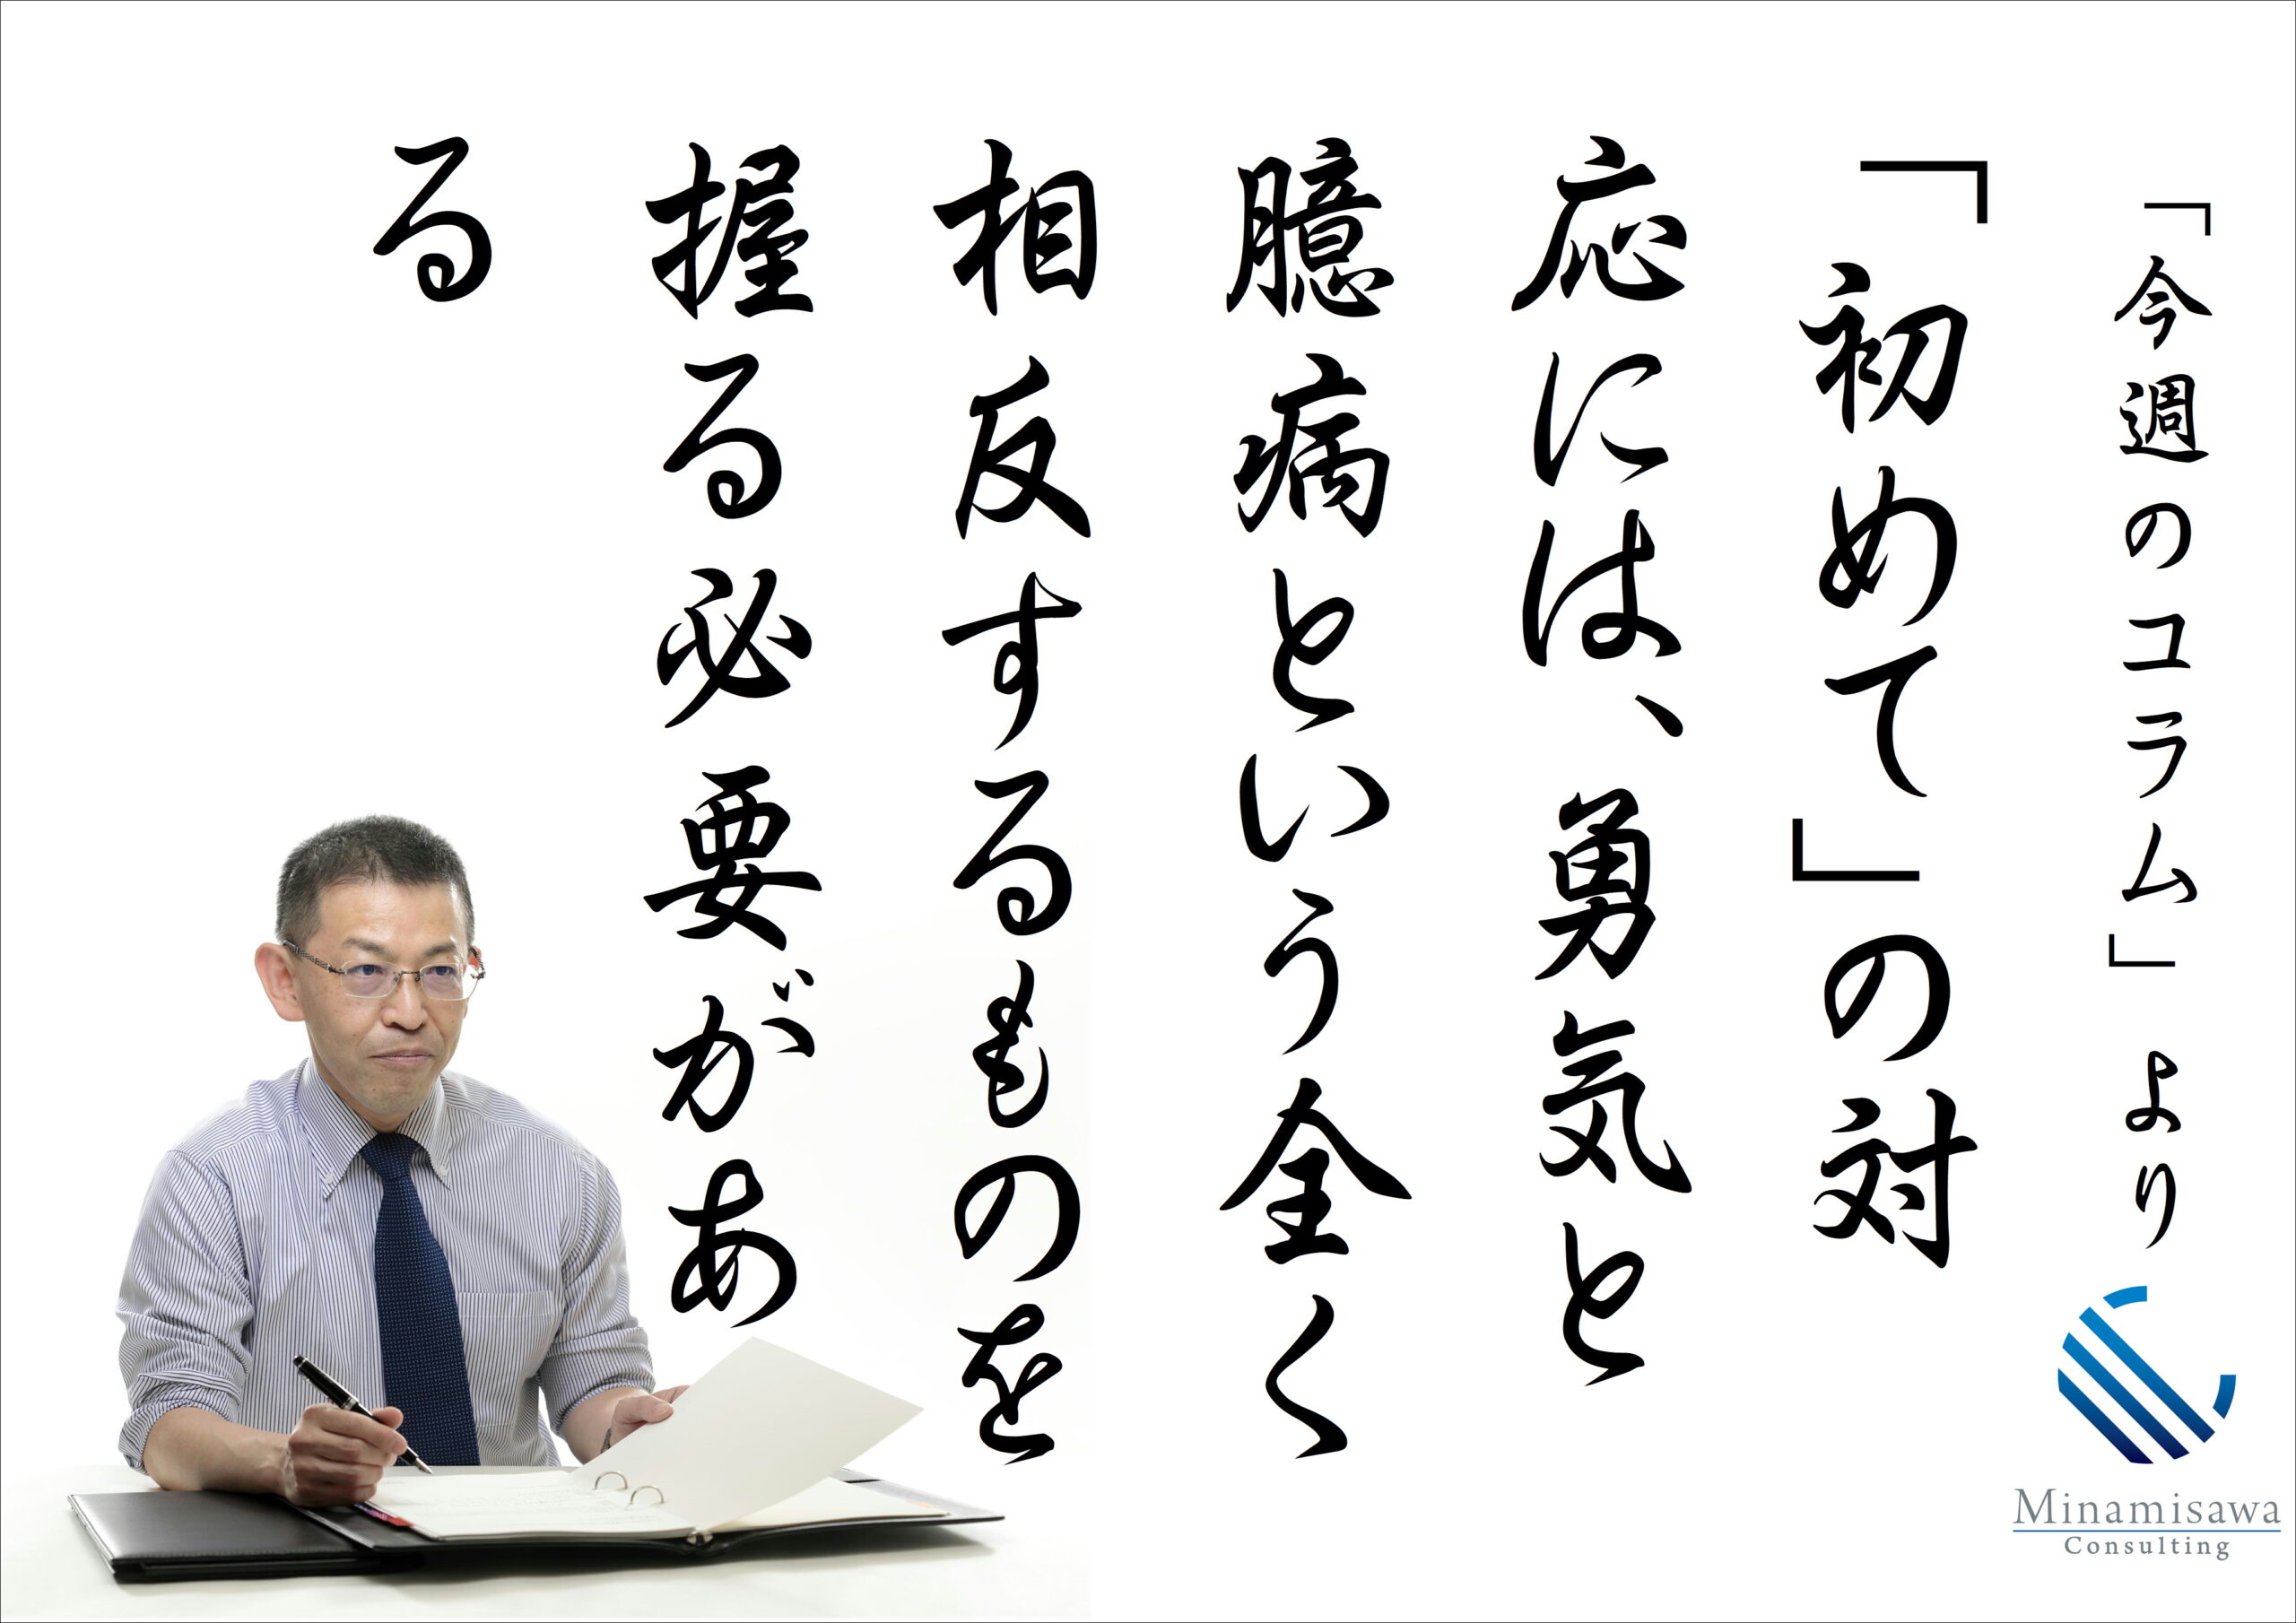 「今週のコラム」より
「初めて」の対
応には、勇気と
臆病という全く
相反するものを
握る必要があ
る
Minamisawa
Consulting